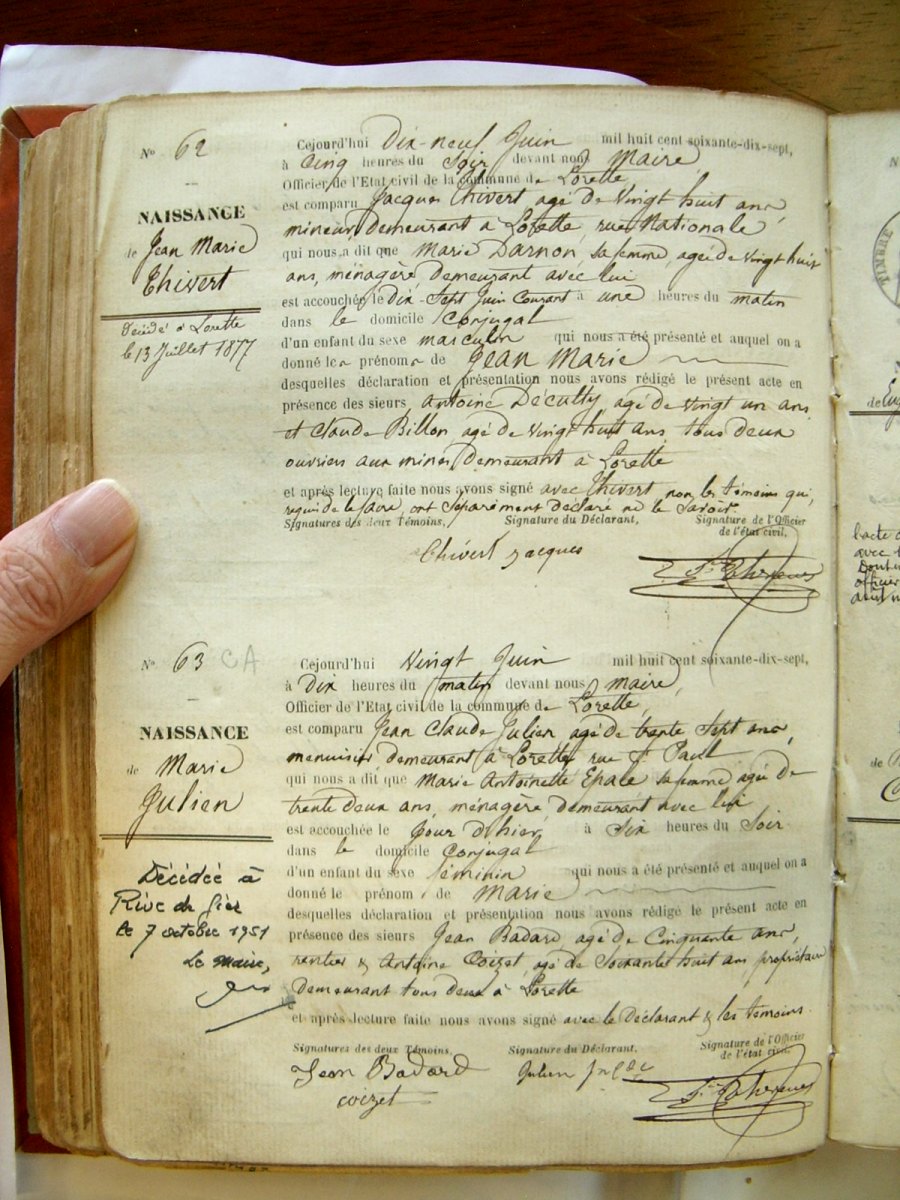 N° 62
NAISSANCE
de Jean Marie
Thivert
Décédé à Lorette
le 13 Juillet 1877
Cejourd'hui Dix-neuf Juin mil huit cent soixante-dix-sept,
à Cinq heures du Soir devant nous Maire
Officier de l'Etat civil de la commune de Lorette
est comparu Jacques Thivert agé de Vingt huit ans,
mineur, demeurant à Lorette, rue Nationale
qui nous a dit que Marie Darnon, sa femme, agée de vingt huit
ans, ménagère demeurant avec lui
est accouchée le dix-sept Juin Courant à une heures du matin
dans le domicile Conjugal
d'un enfant du sexe masculin qui nous a été présenté et auquel on a
donné les prénoms de Jean Marie
desquelles déclaration et présentation nous avons rédigé le présent acte en
présence des sieurs Antoine Décultty, agé de vingt un ans
et Claude Billon agé de vingt huit ans tous deux
ouvriers aux mines demeurant à Lorette
et après lecture faite nous avons signé avec Thivert non les témoins qui,
requis de le faire, ont Séparément déclaré ne le Savoir.
Signatures des deux Témoins, Signature du Déclarant, Signature de l'Officier
de l'état civil,
Thivert Jacques
N° 63 CA
NAISSANCE
de Marie
Julien
Décédée à
Rive de Gier
le 7 octobre 1951
Le Maire,
Cejourd'hui Vingt Juin mil huit cent soixante-dix-sept,
à Dix heures du matin devant nous maire,
Officier de l'Etat civil de la commune de Lorette,
est comparu Jean Claude Julien agé de trente Sept ans,
menuisier, demeurant à Lorette, rue St Paul
qui nous a dit que Marie Antoinette Epale sa femme agée de
trente deux ans, ménagère, demeurant avec lui
est accouchée le Jour d'hier, à Six heures du Soir
dans le domicile Conjugal
d'un enfant du sexe féminin qui nous a été présenté et auquel on a
donné le prénom de Marie
desquelles déclaration et présentation nous avons rédigé le présent acte en
présence des sieurs Jean Badard, agé de Cinquante ans,
rentier & Antoine Coizet, agé de Soixante huit ans propriétaire
demeurant tous deux à Lorette
et après lecture faite nous avons signé avec le Déclarant & les témoins.
Signatures des deux Témoins, Signature du Déclarant, Signature de l'Officier
de l'état civil,
Jean Badard Julien
coizet
TIMBRE